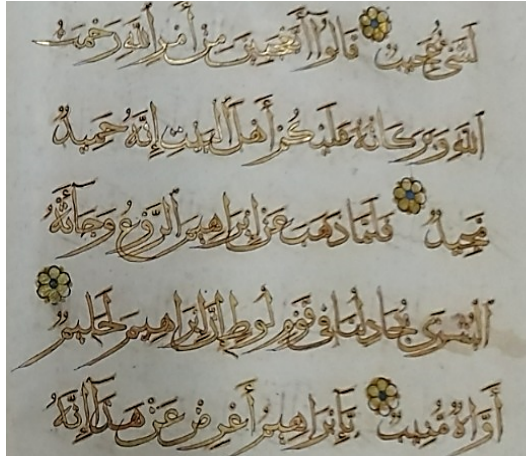 لَشَىْءٌ عَجِيبٌ قَالُوٓا۟ أَتَعْجَبِينَ مِنْ أَمْرِ ٱللَّهِ رَحْمَتُ
ٱللَّهِ وَبَرَكَاتُهُ عَلَيْكُمْ أَهْلَ ٱلْبَيْتِ إِنَّهُ حَمِيدٌ
مَجِيدٌ فَلَمَّا ذَهَبَ عَنْ إِبْرَاهِيمَ ٱلرَّوْعُ وَجَآءَتْهُ
ٱلْبُشْرَى يُجَادِلُنَا فِى قَوْمِ لُوطٍ إِنَّ إِبْرَاهِيمَ لَحَلِيمٌ
أَوَّاهٌ مُنِيبٌ يَآ إِبْرَاهِيمُ أَعْرِضْ عَنْ هَذَا إِنَّهُ